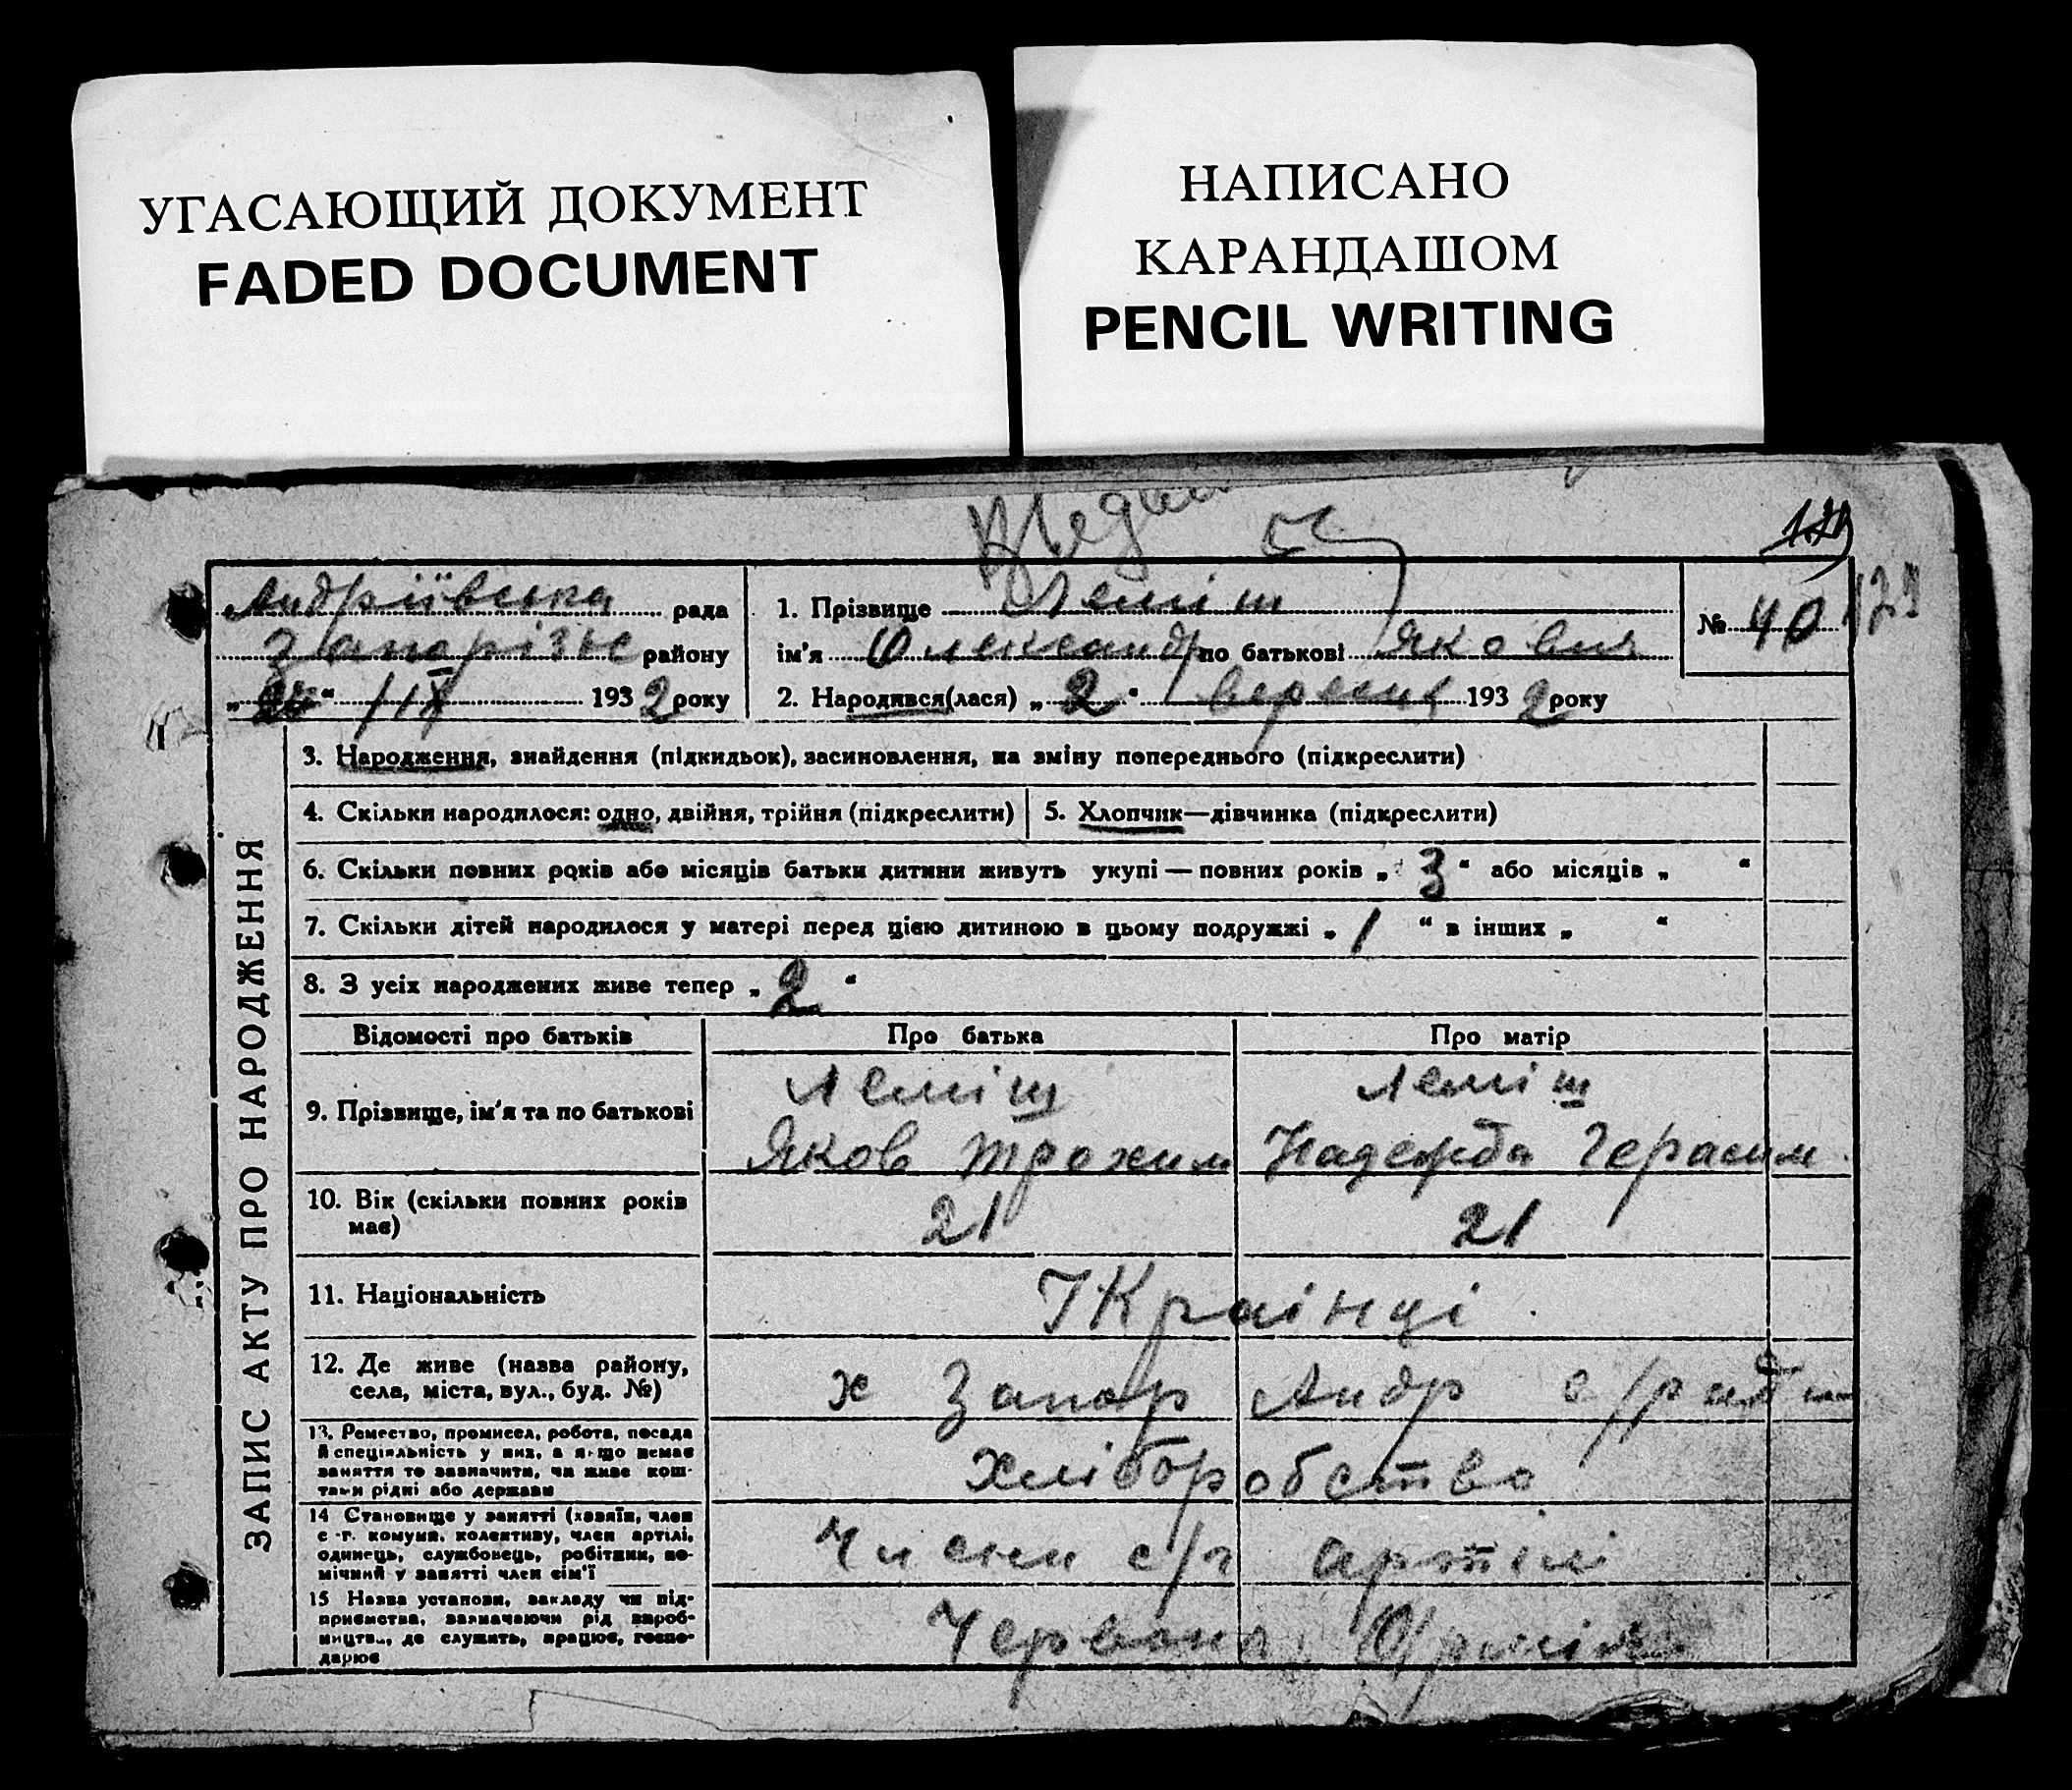 УГАСАЮЩИЙ ДОКУМЕНТ
FADED DOCUMENT
НАПИСАНО
КАРАНДАШОМ
PENCIL WRITING
Андріївська рада
Запорізьс району
„ “ /ІХ 1932 року
1. Прізвище Леміш
ім'я Олександр по батькові Якович
2. Народився(лася) „2“ вересня 1932 року
№ 40
ЗАПИС АКТУ ПРО НАРОДЖЕННЯ
3. Народження, знайдення (підкидьок), засиновлення, на зміну попереднього (підкреслити)
4. Скільки народилося: одно, двійня, трійня (підкреслити)
5. Хлопчик—дівчинка (підкреслити)
6. Скільки повних років або місяців батьки дитини живуть укупі — повних років „3“ або місяців „ “
7. Скільки дітей народилося у матері перед цією дитиною в цьому подружжі „1“ в інших „ “
8. З усіх народжених живе тепер „2“
Відомості про батьків Про батька Про матір
9. Прізвище, ім'я та по батькові
Леміш
Яков Трохим
Леміш
Надежда Герасим.
10. Вік (скільки повних років
має)
21 21
11. Національність
Украінці
12. Де живе (назва району,
села, міста, вул., буд. №)
х Запор Андр с/ради
13. Ремество, промисел, робота, посада
й спеціяльність у них, а якщо немає
заняття то зазначити, чи живе кош-
тами рідні або держави
Хліборобство
14 Становище у занятті (хазяїн, член
с.-г. комуни, колективу, член артілі,
одинець, службовець, робітник, по-
мічний у занятті член сім'ї
Члени с/г артілі
15 Назва установи, закладу чи під-
приємства, зазначаючи рід вироб-
ництва, де служить, працює, госпо-
дарює
Червона Армія